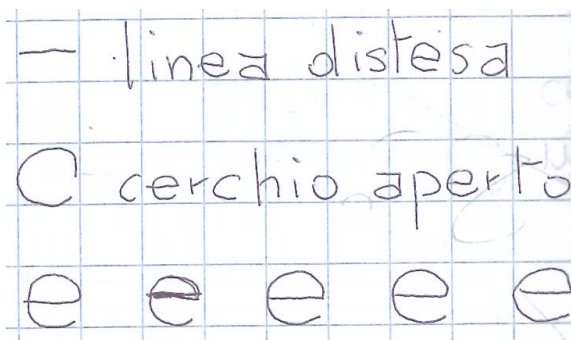 — linea distesa
C cerchio aperto
e e e e e